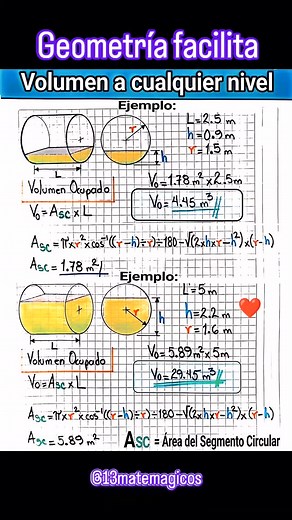 Geometría facilita
Volumen a cualquier nivel
Ejemplo:
L=2.5 m
h=0.9 m
r=1.5 m
r
h
L
Volumen Ocupado
Vo=Asc x L
Vo=1.78 m² x 2.5 m
Vo=4.45 m³
Asc=π x r² x cos⁻¹((r-h)÷r)÷180-√(2xhxr-h²)x(r-h)
Asc=1.78 m²
Ejemplo:
L=5 m
h=2.2 m
r=1.6 m
h
r
L
Volumen Ocupado
Vo=Asc x L
Vo=5.89 m² x 5 m
Vo=29.45 m³
Asc=π x r² x cos⁻¹((r-h)÷r)÷180-√(2xhxr-h²)x(r-h)
Asc=5.89 m²
Asc = Área del Segmento Circular
@13matemagicos